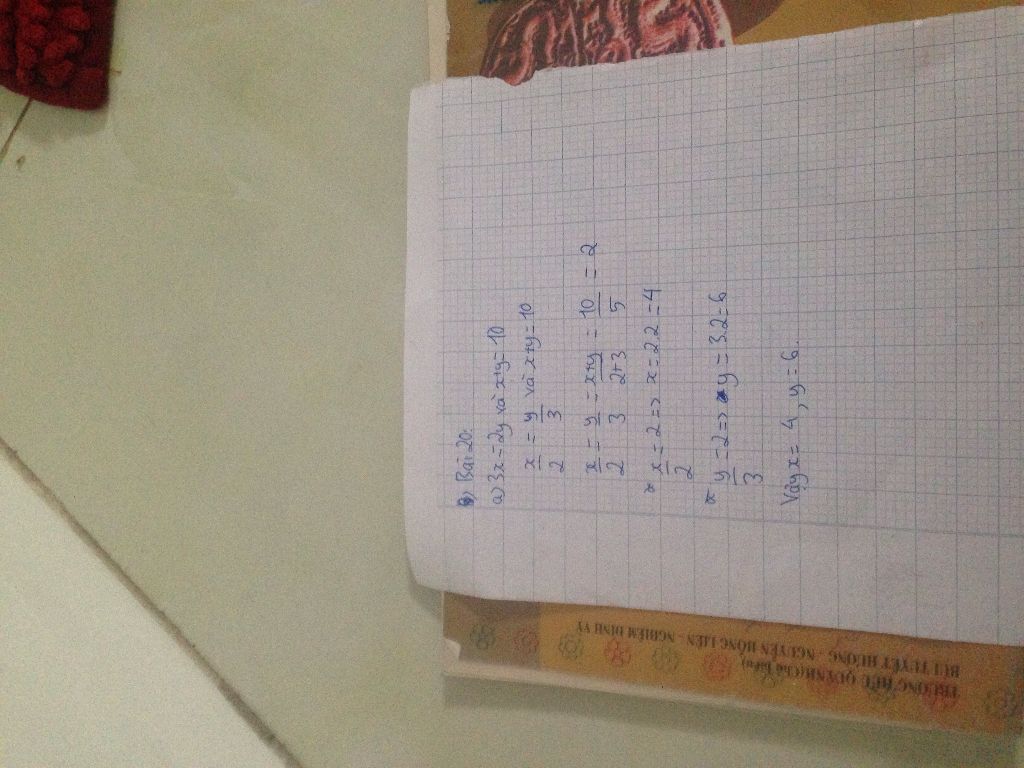 Bài 20:
a) 3x = 2y và x+y = 10
x/2 = y/3 và x+y = 10
x/2 = y/3 = x+y/2+3 = 10/5 = 2
* x/2 = 2 => x = 2.2 = 4
* y/3 = 2 => y = 3.2 = 6
Vậy x = 4, y = 6.
TRƯƠNG HỮU QUÝNH (Chủ biên)
BÙI TUYẾT HƯƠNG - NGUYỄN HỒNG LIÊN - NGHIÊM ĐÌNH VỲ